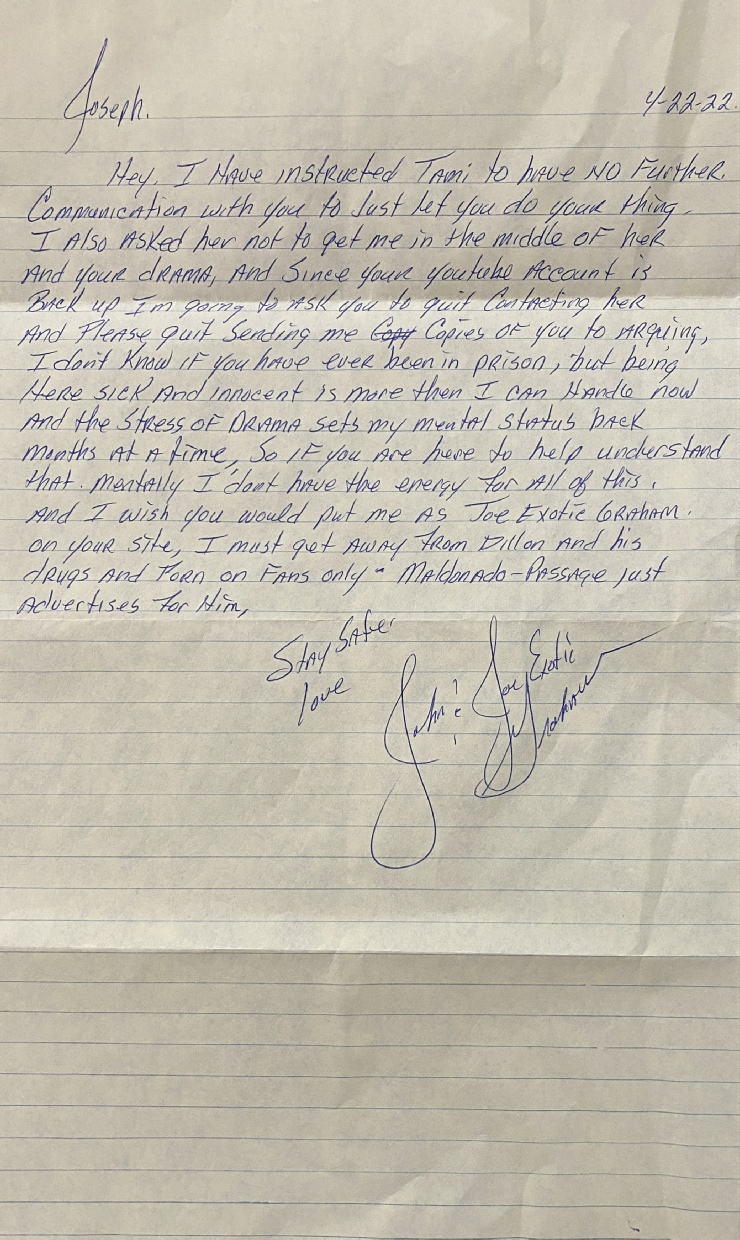 Joseph.
4-22-22.
Hey, I Have instructed Tami to have NO Further.
Communication with you to Just let you do your thing.
I Also Asked her not to get me in the middle OF her
And your drama, And Since your youtube Account is
Back up Im going to Ask you to quit Contacting her
And Please quit Sending me Copies OF you to Arquing,
I dont Know if you have ever been in prison, but being
Here sick And innocent is more then I can Handle now
And the Stress of Drama sets my mental status back
months At A time, So if you are here to help understand
that. mentally I dont have the energy for All of this.
And I wish you would put me As Joe Exotic Graham.
on your site, I must get Away From Dillon and his
drugs And Porn on Fans only - Maldonado-Passage just
Advertises for Him,
Stay Safe.
love
John & Joe Exotic
Graham